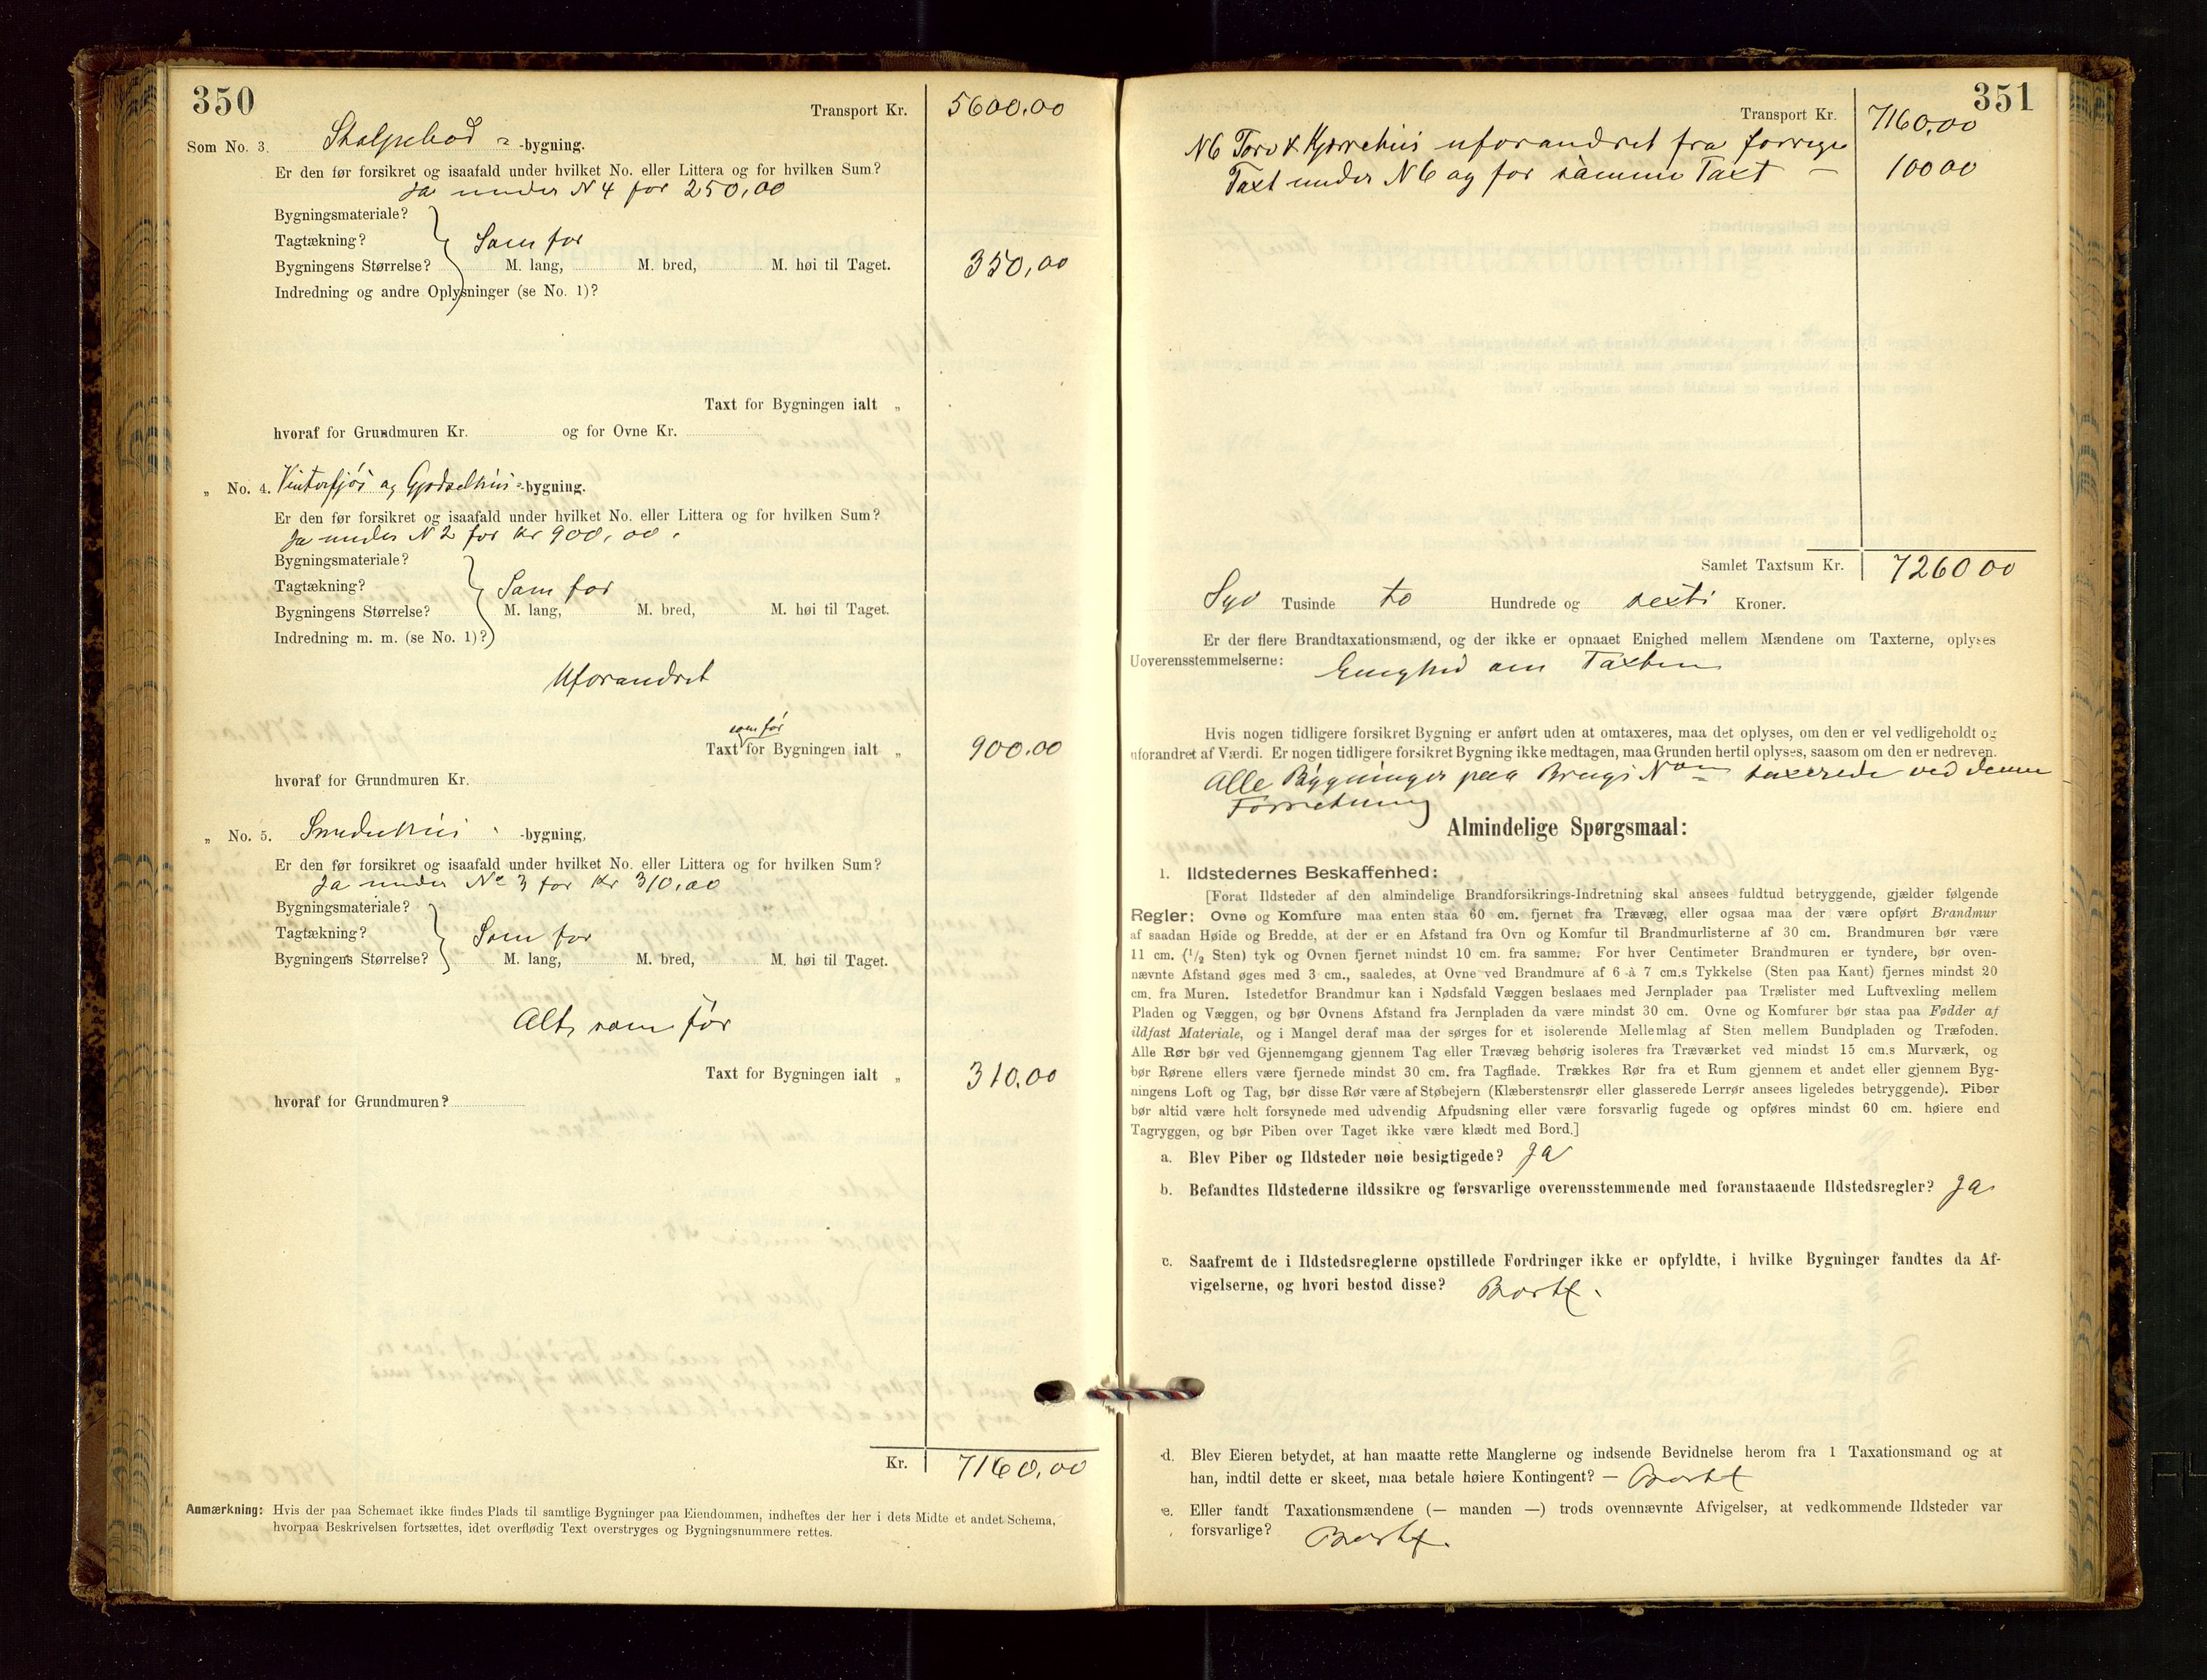 350
Transport Kr. 5600,00
Som No. 3. Stolpebod = -bygning.
Er den før forsikret og isaafald under hvilket No. eller Littera og for hvilken Sum?
Ja under N 4 for 250,00
Bygningsmateriale?
Tagtækning? Som før
Bygningens Størrelse? M. lang, M. bred, M. høi til Taget. 350,00
Indredning og andre Oplysninger (se No. 1)?
Taxt for Bygningen ialt „
hvoraf for Grundmuren Kr. og for Ovne Kr.
„ No. 4. Vinterfjøs og Gjødselhus = -bygning.
Er den før forsikret og isaafald under hvilket No. eller Littera og for hvilken Sum?
Ja under N 2 for Kr 900,00.
Bygningsmateriale?
Tagtækning? Som før
Bygningens Størrelse? M. lang, M. bred, M. høi til Taget.
Indredning m. m. (se No. 1)?
Uforandret
som før
Taxt for Bygningen ialt „ 900.00
hvoraf for Grundmuren Kr.
„ No. 5. Smedehus -bygning,
Er den før forsikret og isaafald under hvilket No. eller Littera og for hvilken Sum?
Ja under No 3 for Kr 310,00
Bygningsmateriale?
Tagtækning? Som før
Bygningens Størrelse? M. lang, M. bred, M. høi til Taget.
Alt som før
Taxt for Bygningen ialt „ 310.00
hvoraf for Grundmuren?
Kr. 7160,00
Anmærkning: Hvis der paa Schemaet ikke findes Plads til samtlige Bygninger paa Eiendommen, indheftes der her i dets Midte et andet Schema,
hvorpaa Beskrivelsen fortsættes, idet overflødig Text overstryges og Bygningsnummere rettes.
351
Transport Kr. 7160,00
N 6 Torv & Kjørrehus uforandret fra forrige
Taxt under N 6 og for samme Taxt – 100 00
Samlet Taxtsum Kr. 7260 00
Syv Tusinde to Hundrede og sexti Kroner.
Er der flere Brandtaxationsmænd, og der ikke er opnaaet Enighed mellem Mændene om Taxterne, oplyses
Uoverensstemmelserne: Enighed om Taxten
Hvis nogen tidligere forsikret Bygning er anført uden at omtaxeres, maa det oplyses, om den er vel vedligeholdt og
uforandret af Værdi. Er nogen tidligere forsikret Bygning ikke medtagen, maa Grunden hertil oplyses, saasom om den er nedreven.
Alle Bygninger paa Brugs taxerede ved denne
Forretning
Almindelige Spørgsmaal:
1. Ildstedernes Beskaffenhed:
[Forat Ildsteder af den almindelige Brandforsikrings-Indretning skal ansees fuldtud betryggende, gjælder følgende
Regler: Ovne og Komfure maa enten staa 60 cm. fjernet fra Trævæg, eller ogsaa maa der være opført Brandmur
af saadan Høide og Bredde, at der er en Afstand fra Ovn og Komfur til Brandmurlisterne af 30 cm. Brandmuren bør være
11 cm. (1/2 Sten) tyk og Ovnen fjernet mindst 10 cm. fra samme. For hver Centimeter Brandmuren er tyndere, bør oven-
nævnte Afstand øges med 3 cm., saaledes, at Ovne ved Brandmure af 6 à 7 cm.s Tykkelse (Sten paa Kant) fjernes mindst 20
cm. fra Muren. Istedetfor Brandmur kan i Nødsfald Væggen beslaaes med Jernplader paa Trælister med Luftvexling mellem
Pladen og Væggen, og bør Ovnens Afstand fra Jernpladen da være mindst 30 cm. Ovne og Komfurer bør staa paa Fødder af
ildfast Materiale, og i Mangel deraf maa der sørges for et isolerende Mellemlag af Sten mellem Bundpladen og Træfoden.
Alle Rør bør ved Gjennemgang gjennem Tag eller Trævæg behørig isoleres fra Træværket ved mindst 15 cm.s Murværk, og
bør Rørene ellers være fjernede mindst 30 cm. fra Tagflade. Trækkes Rør fra et Rum gjennem et andet eller gjennem Byg-
ningens Loft og Tag, bør disse Rør være af Støbejern (Klæberstensrør eller glasserede Lerrør ansees ligeledes betryggende). Piber
bør altid være helt forsynede med udvendig Afpudsning eller være forsvarlig fugede og opføres mindst 60 cm. høiere end
Tagryggen, og bør Piben over Taget ikke være klædt med Bord.]
a. Blev Piber og Ildsteder nøie besigtigede? Ja
b. Befandtes Ildstederne ildssikre og forsvarlige overensstemmende med foranstaaende Ildstedsregler? Ja
c. Saafremt de i Ildstedsreglerne opstillede Fordringer ikke er opfyldte, i hvilke Bygninger fandtes da Af-
vigelserne, og hvori bestod disse? Bortf.
d. Blev Eieren betydet, at han maatte rette Manglerne og indsende Bevidnelse herom fra 1 Taxationsmand og at
han, indtil dette er skeet, maa betale høiere Kontingent? – Bortf
e. Eller fandt Taxationsmændene (— manden —) trods ovennævnte Afvigelser, at vedkommende Ildsteder var
forsvarlige? Bortf.